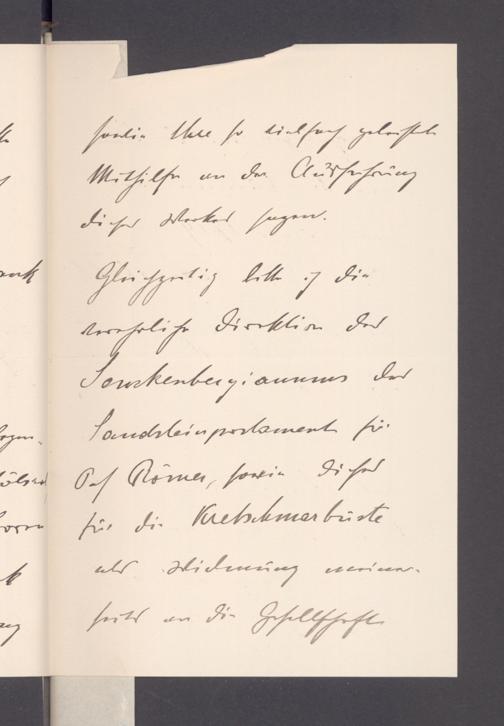 sowie Ihre so vielfach geleistete
Mithilfe an der Ausführung
dieses Werkes sagen.
Gleichzeitig bitte ich die
verehrliche Direktion des
Senckenbergianums das
Sandsteinpostament für
Prof Römer, sowie dieses
für die Kretschmarbüste
als Widmung meiner-
seits an die Gesellschaft